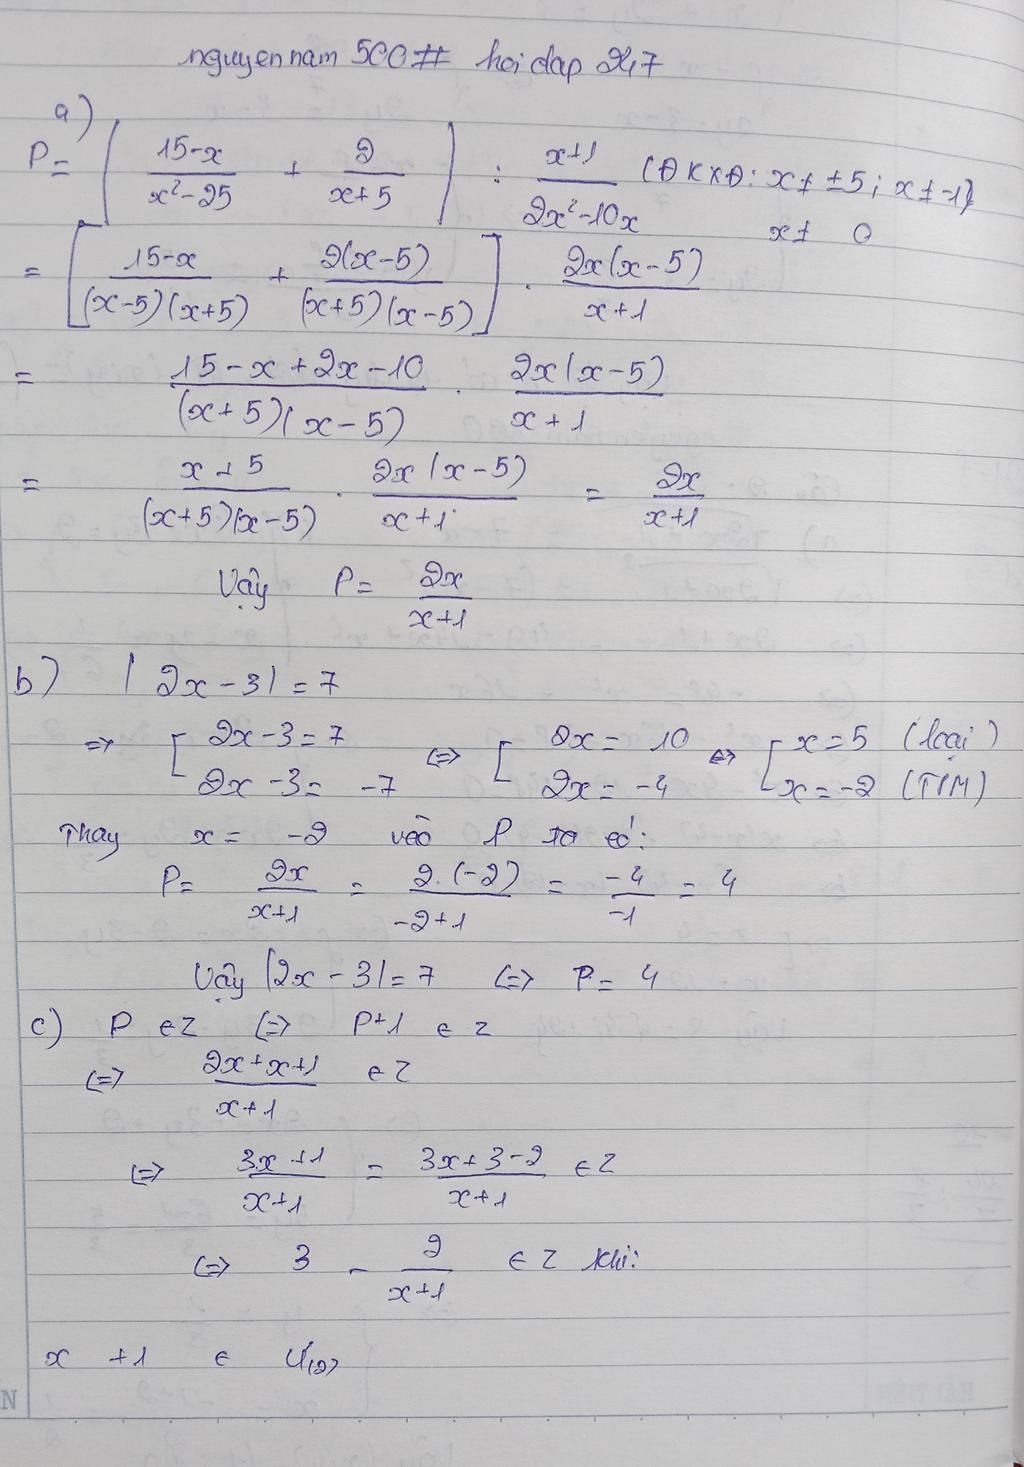 nguyennam500# hoi dap 247
a)
P = [ (15-x)/(x²-25) + 2/(x+5) ] : (x+1)/(2x²-10x) (ĐKXĐ: x ≠ ±5; x ≠ -1)
x ≠ 0
= [ (15-x)/((x-5)(x+5)) + 2(x-5)/((x+5)(x-5)) ] . 2x(x-5)/(x+1)
= (15-x+2x-10)/((x+5)(x-5)) . 2x(x-5)/(x+1)
= (x+5)/((x+5)(x-5)) . 2x(x-5)/(x+1) = 2x/(x+1)
Vậy P = 2x/(x+1)
b) |2x-3| = 7
=> [ 2x-3 = 7 <=> [ 2x = 10 <=> [ x = 5 (loại)
2x-3 = -7 2x = -4 x = -2 (TM)
Thay x = -2 vào P ta có:
P = 2x/(x+1) = 2.(-2)/(-2+1) = -4/-1 = 4
Vậy |2x-3| = 7 <=> P = 4
c) P ∈ Z <=> P+1 ∈ Z
<=> (2x+x+1)/(x+1) ∈ Z
<=> (3x+1)/(x+1) = (3x+3-2)/(x+1) ∈ Z
<=> 3 - 2/(x+1) ∈ Z khi:
x +1 ∈ Ư(2)